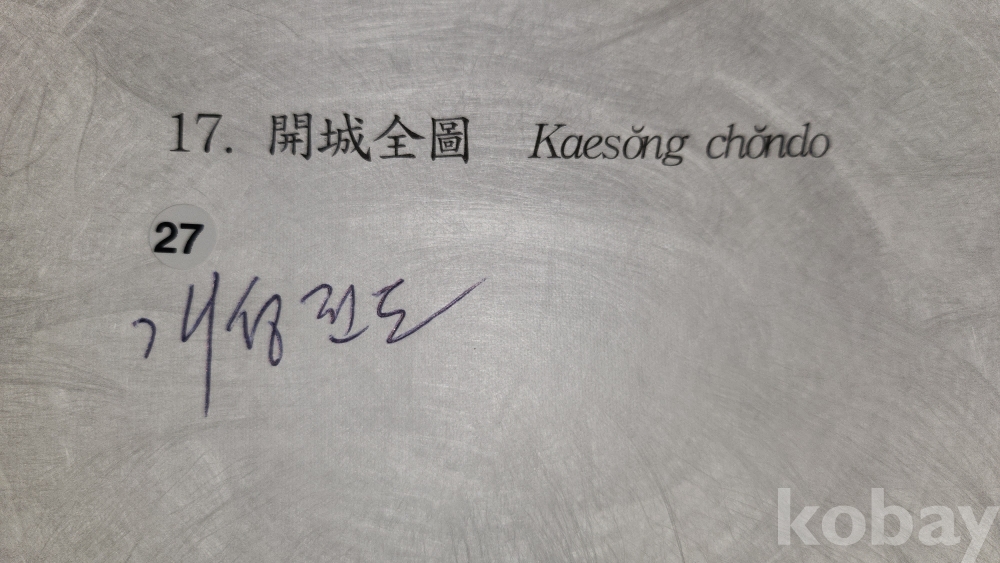 17. 開城全圖 Kaesŏng chŏndo
27
개성전도
kobay